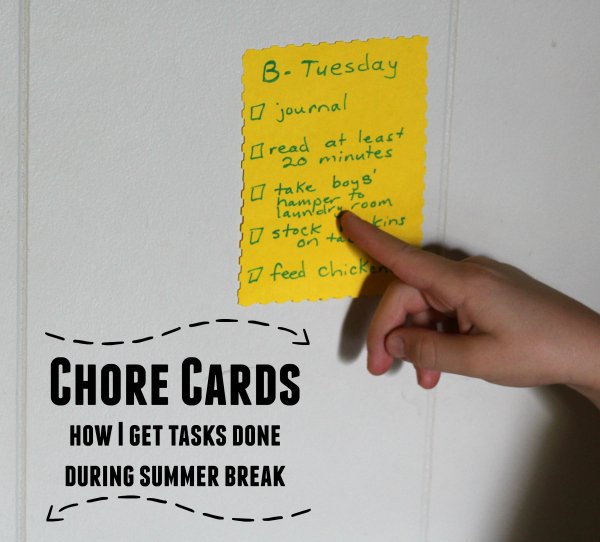 B- Tuesday
journal
read at least
20 minutes
take boys'
hamper to
laundry room
stock
on
feed chicken
CHORE CARDS
HOW I GET TASKS DONE
DURING SUMMER BREAK